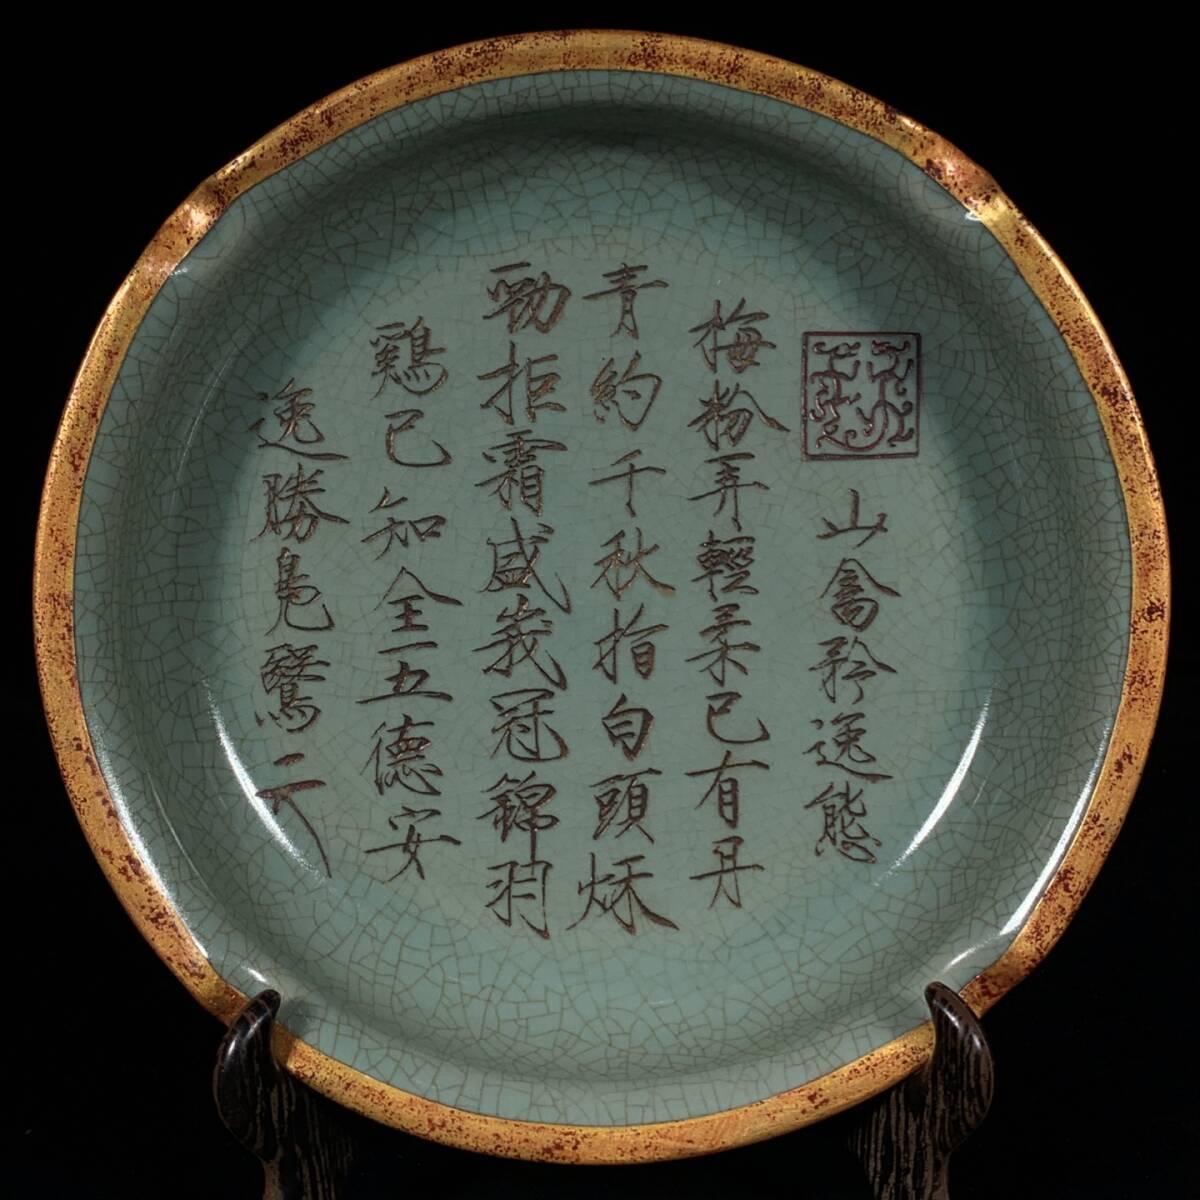 山禽矜逸態
梅粉弄輕柔已有丹
青約千秋指白頭秌
勁拒霜盛峩冠錦羽
鷄已知全五德安
逸勝鳧鷖